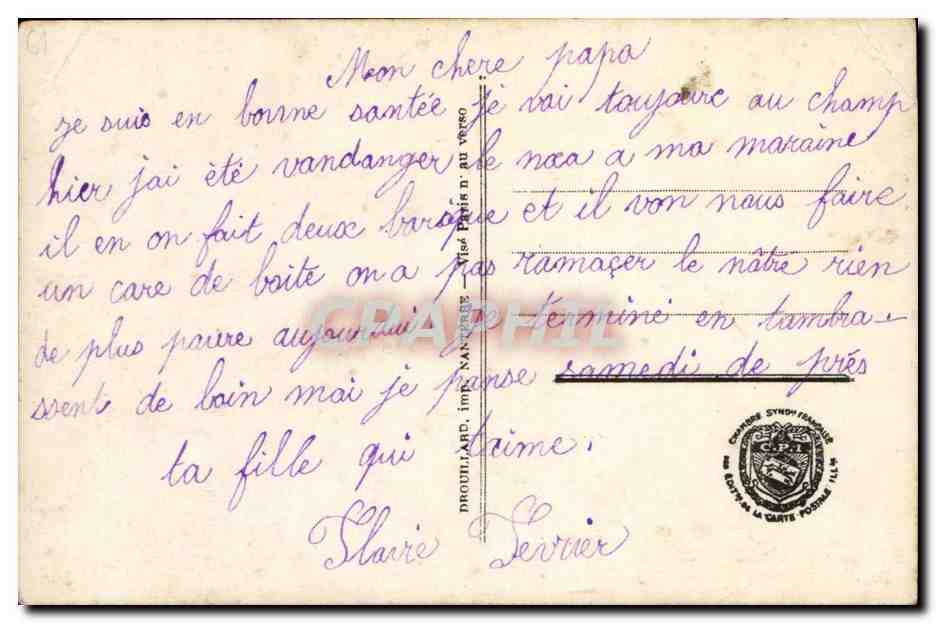 Mon chere papa
je suis en bonne santée je vai toujourc au champ
hier jai été vandanger le noa a ma maraine
il en on fait deux barique et il von nous faire
un care de boite on a pas ramaçer le nâtre rien
de plus paure aujourdui je termine en tambra-
ssent de loin moi je panse samedi de prés
ta fille qui t'aime.
Fevrier
DROUILLARD, imp. NANTERRE — Visé Paris n° au verso
CHAMBRE SYND^le FRANÇAISE
DES ÉDIT^rs DE LA CARTE POSTALE ILL^ée
CRAPHIL
61